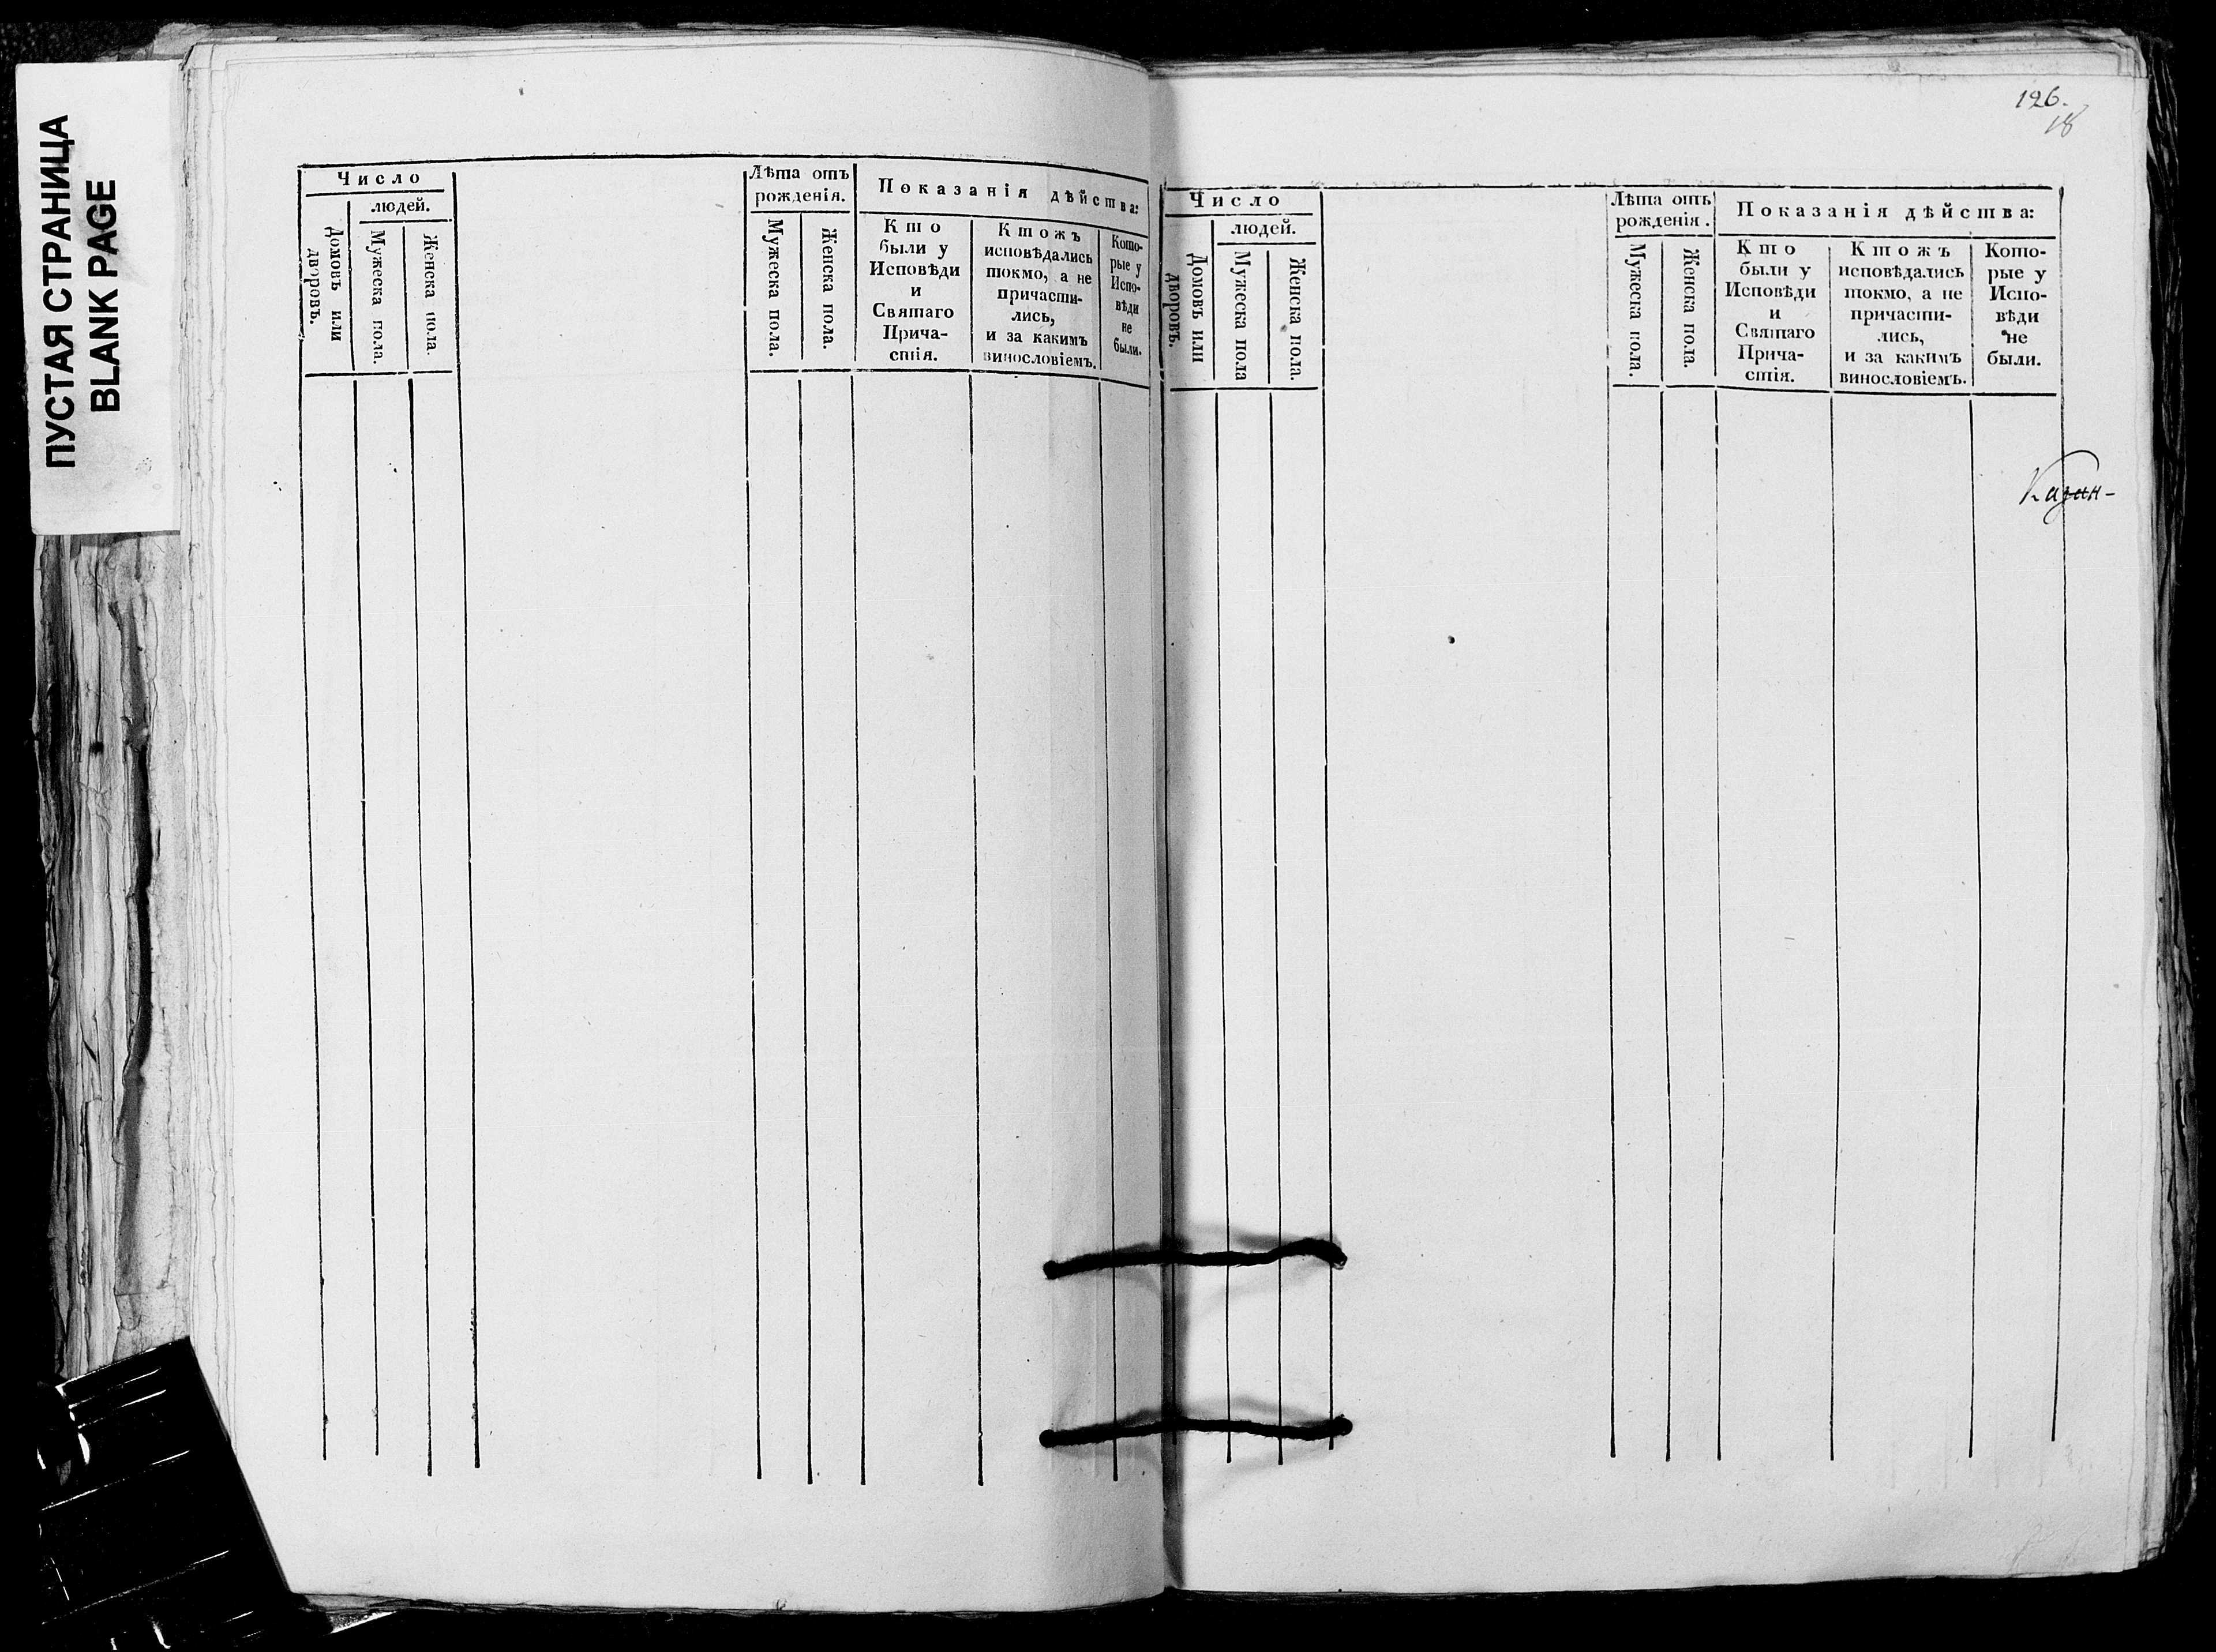 ПУСТАЯ СТРАНИЦА
BLANK PAGE
Число
людей.
Домовъ или
дворовъ.
Мужеска пола.
Женска пола.
Лѣта отъ
рожденія.
Мужеска пола.
Женска пола.
Показанія дѣйства:
Кто
были у
Исповѣди
и
Святаго
Прича-
стія.
Ктожъ
исповѣдались
токмо, а не
причасти-
лись,
и за какимъ
винословіемъ.
Кото-
рые у
Испо-
вѣди
не
были.
126.
18
Число
людей.
Домовъ или
дворовъ.
Мужеска пола
Женска пола.
Лѣта отъ
рожденія.
Мужеска пола.
Женска пола.
Показанія дѣйства:
Кто
были у
Исповѣди
и
Святаго
Прича-
стія.
Ктожъ
исповѣдались
токмо, а не
причасти-
лись,
и за какимъ
винословіемъ.
Кото-
рые у
Испо-
вѣди
не
были.
Казан-